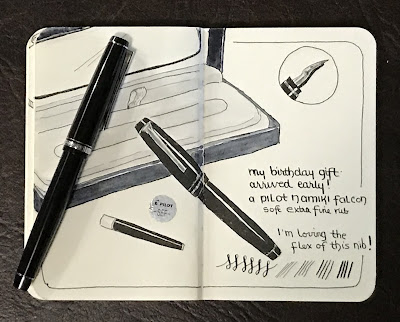 my birthday gift
arrived early!
a pilot namiki falcon
soft extra fine nib
I'm loving the
flex of this nib!
PILOT
SEF